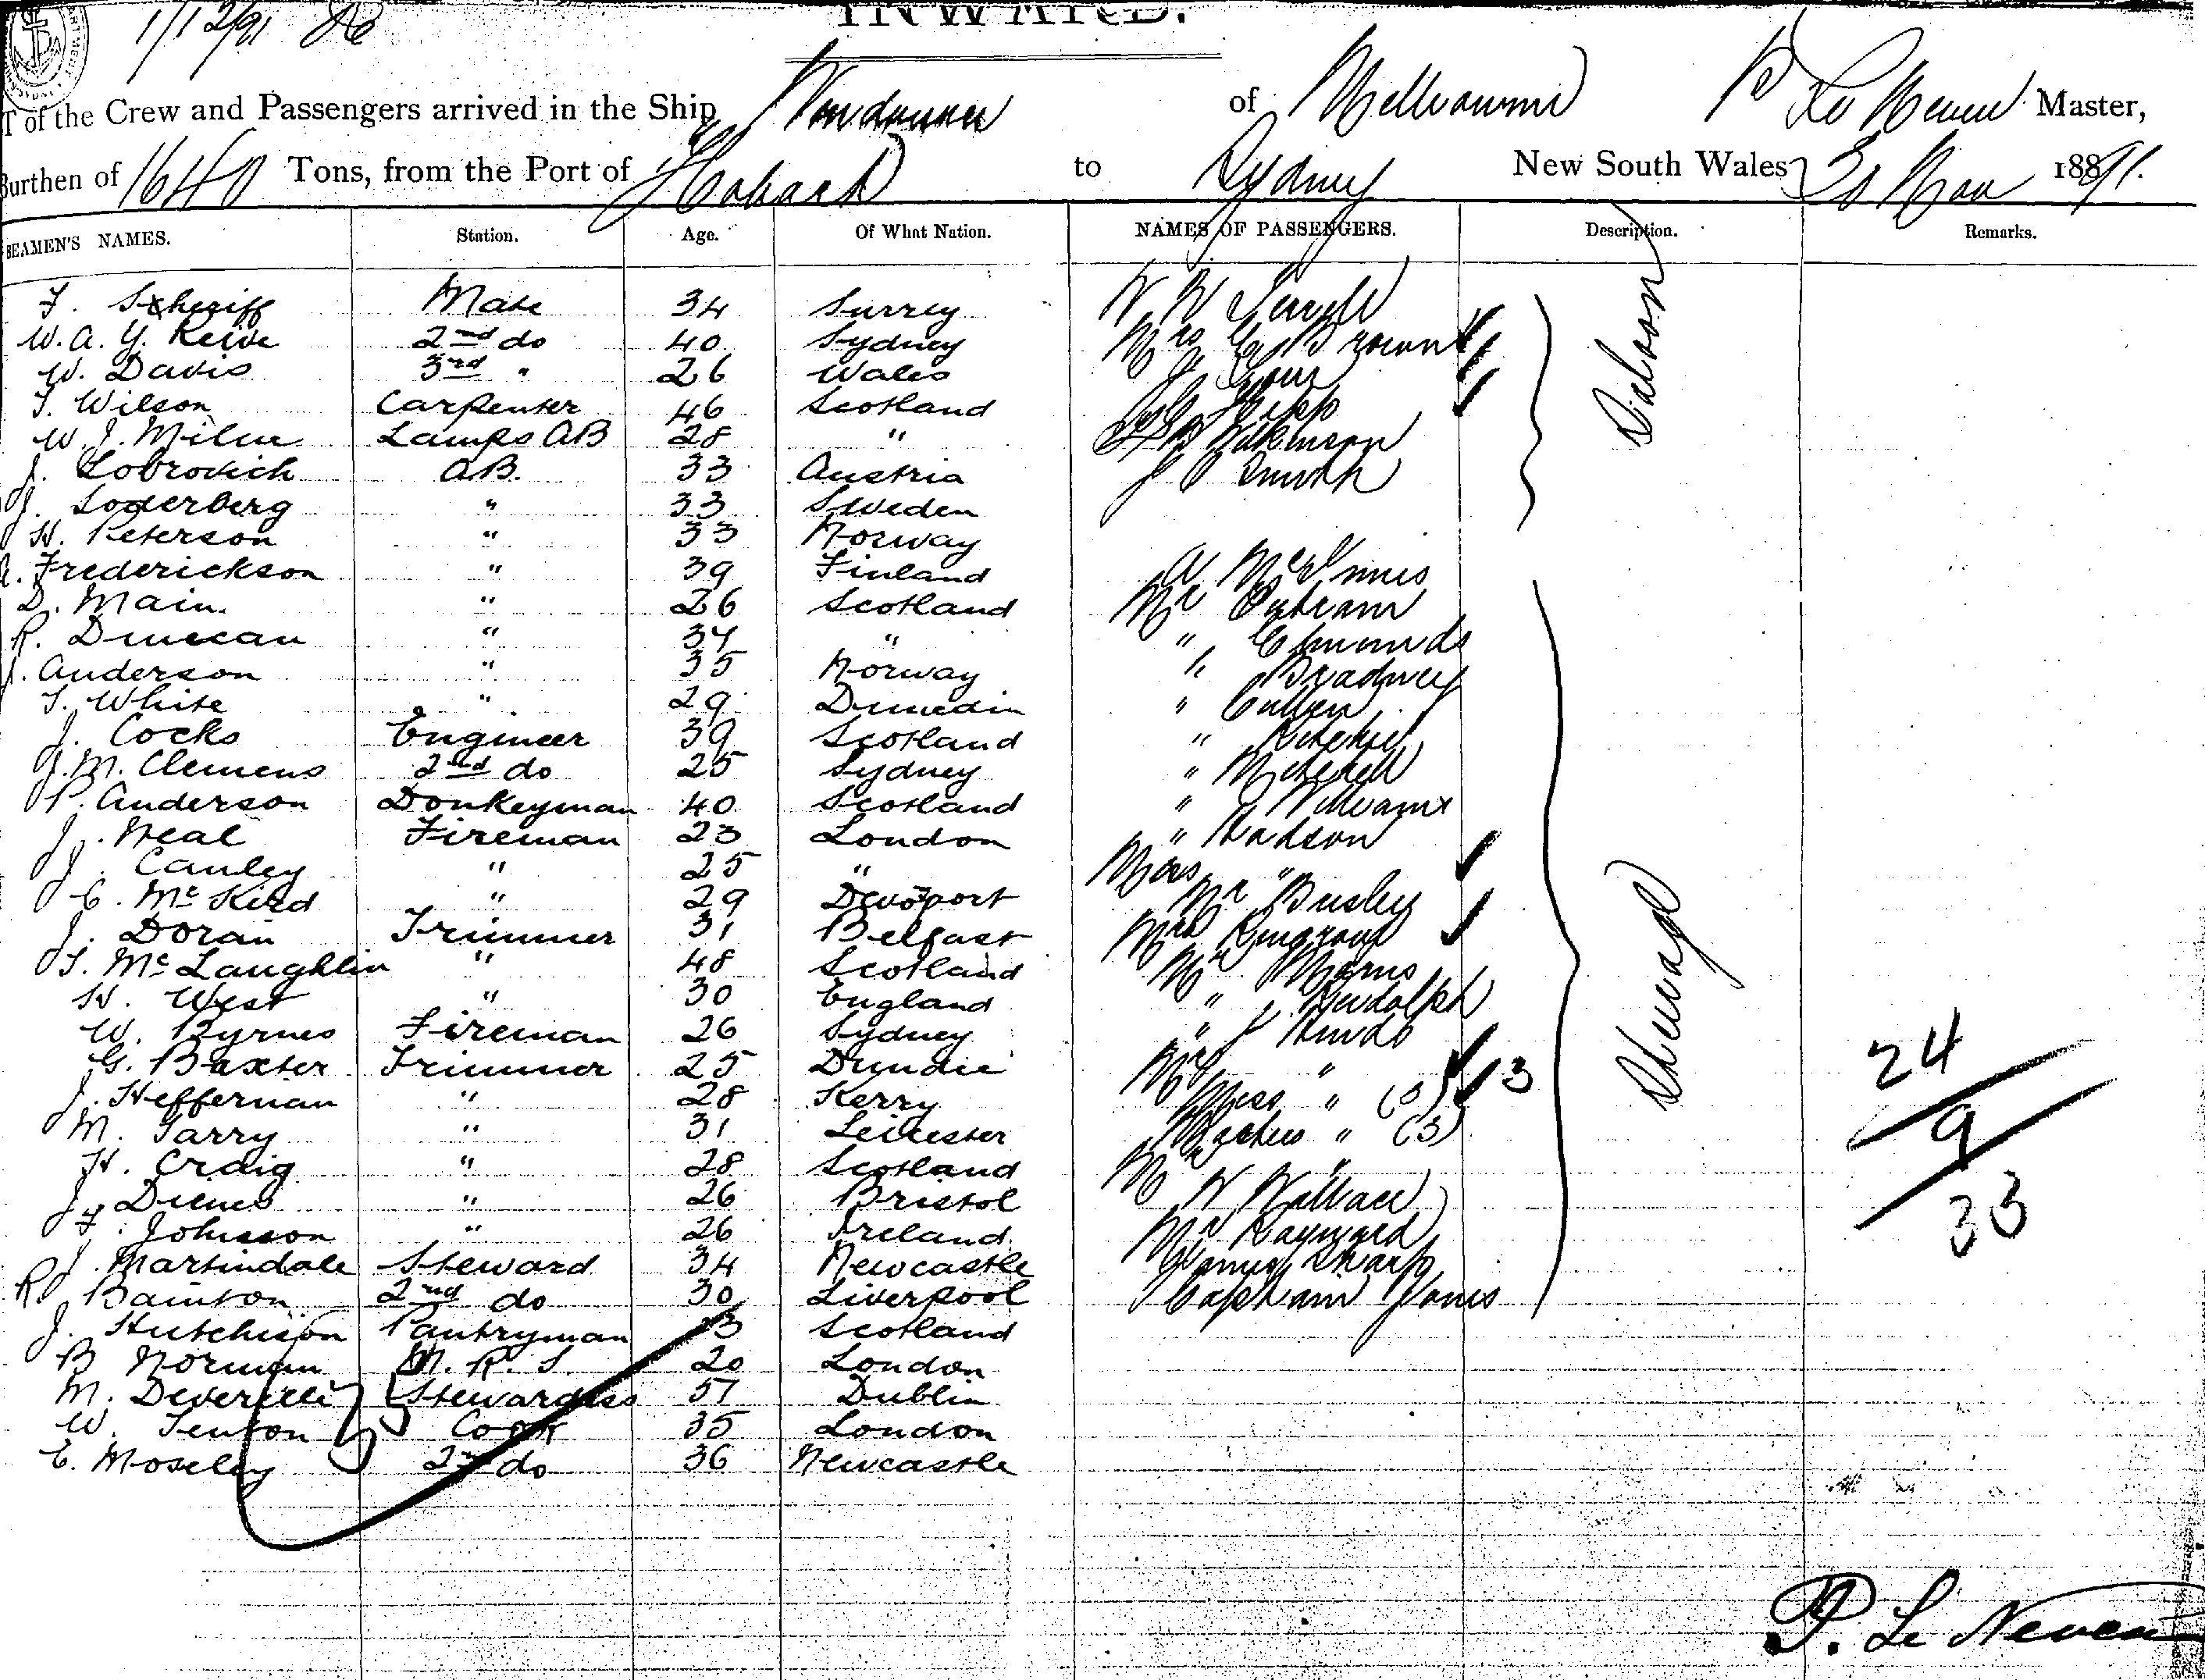 1/12/91
INWARD.
T of the Crew and Passengers arrived in the Ship of Melbourne P Le Neveu Master,
Burthen of 1640 Tons, from the Port of Hobart to Sydney New South Wales 30 Nov 1891.
SEAMEN'S NAMES. Station. Age. Of What Nation. NAMES OF PASSENGERS. Description. Remarks.
F. Sheriff Mate 34 Surrey
W. A. Y. 2nd do 40 Sydney Mrs Brown
W. Davis 3rd " 26 Wales
T. Wilson Carpenter 46 Scotland
W. J. Milne Lamps AB 28 " Wilkinson
J. Lobrovich AB. 33 Austria J Smith
J. Soderberg " 33 Sweden
H. Peterson " 33 Norway
Saloon
A. Frederickson " 39 Finland A McInnis
D. Main " 26 Scotland Mr Outram
R. Duncan " 37 " " Edmunds
J. Anderson " 35 Norway " Bradney
T. White " 29 Dunedin " Cullen
J. Cocks Engineer 39 Scotland " Ritchie
J. M. Clemens 2nd do 25 Sydney " Mitchell
P. Anderson Donkeyman 40 Scotland " Williams
J. Neal Fireman 23 London " Hadson
J. Cauley " 25 " Mrs "
C. McKidd " 29 Devoport Mr Busley
J. Doran Trimmer 31 Belfast Mrs
T. McLaughlin " 48 Scotland Mr
H. West " 30 England " J Rudolph
W. Byrnes Fireman 26 Sydney " J Hinds
G. Baxter Trimmer 25 Dundie Mrs "
J. Heffernan " 28 Kerry Miss " (3) 3
M. Tarry " 31 Leicester Masters " (3)
H. Craig " 28 Scotland
J. " 26 Bristol W Wallace
F. Johnson " 26 Ireland Mr Hayward
J. Martindale Steward 34 Newcastle Sharp
R. Bainton 2nd do 30 Liverpool Captain Jones
Steerage
24
9
33
J. Hutchison Pantryman 23 Scotland
B Norman M. R. S 20 London
M. Deverelle Stewardess 57 Dublin
W. Tenton Cook 35 London
E. Moseley 2nd do 36 Newcastle
P. Le Neveu